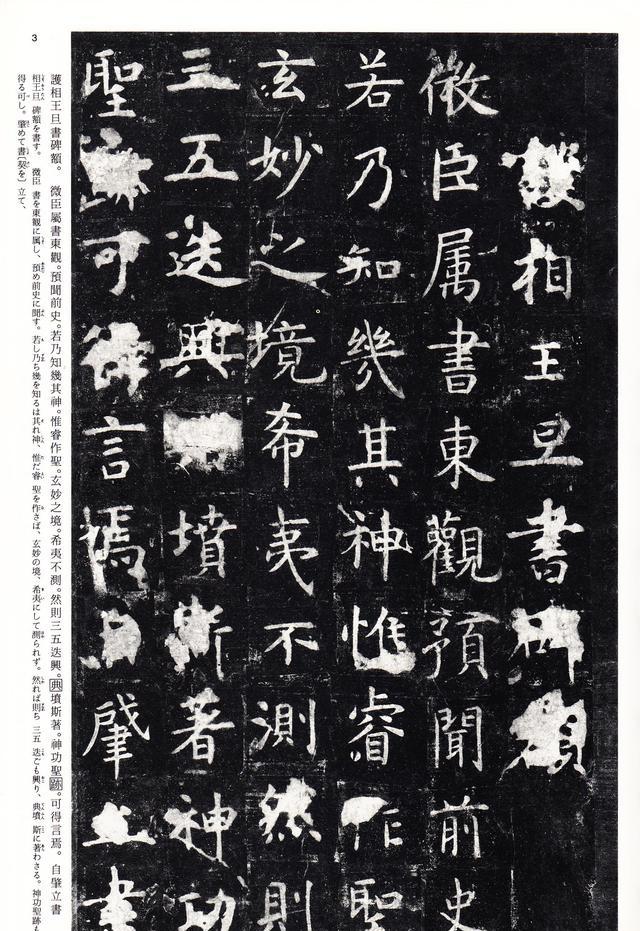 護相王旦書碑額
微臣属書東觀預聞前史
若乃知幾其神惟睿作聖
玄妙之境希夷不測然則
三五迭興墳斯著神功
聖跡可得言焉自肇立書
護相王旦書碑額。 微臣屬書東觀。預聞前史。若乃知幾其神。惟睿作聖。玄妙之境。希夷不測。然則三五迭興。典墳斯著。神功聖跡。可得言焉。 自肇立書
相王旦 碑額を書す。 微臣 書を東観に属し、預め前史に聞す。若し乃ち幾を知るは其れ神、惟だ睿 聖を作さば、玄妙の境、希夷にして測られず。然れば則ち 三五 迭ごも興り、典墳 斯に著わさる。神功聖跡も
得る可し。肇めて書〔契を〕立て、
3